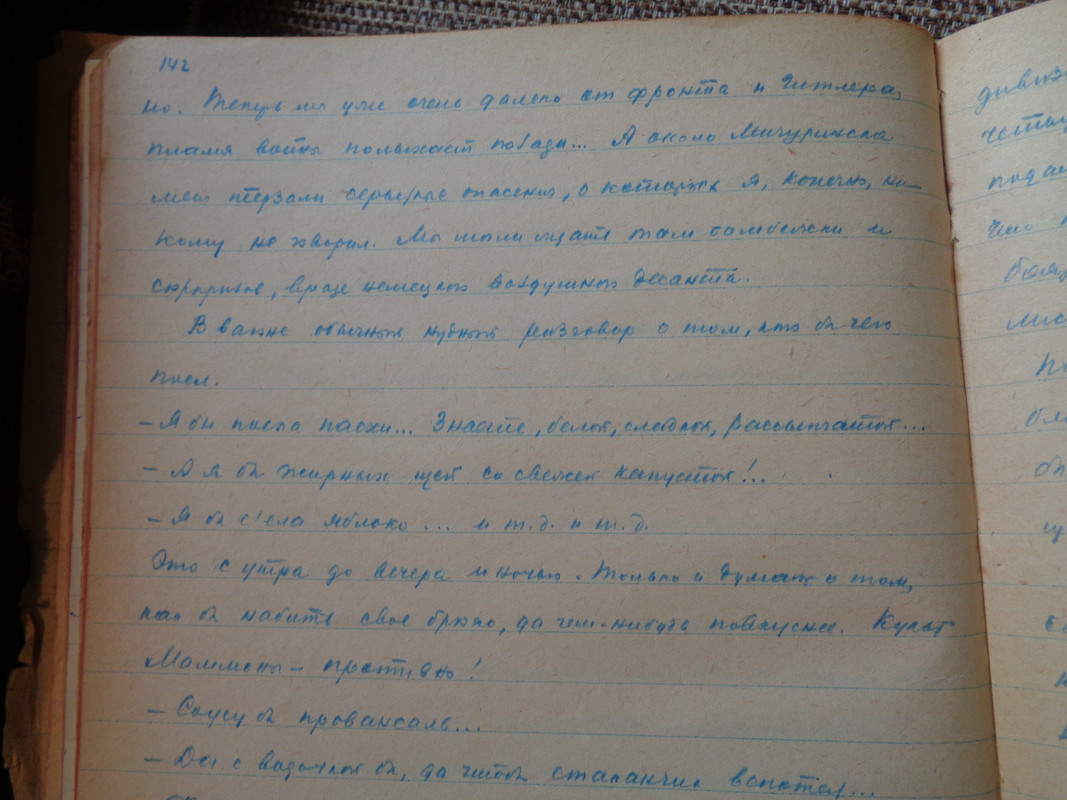 142
но. Теперь мы уже очень далеко от фронта и Гитлера,
пламя войны полыхает позади... А около Мичуринска
меня терзали серьезные опасения, о которых я, конечно, ни-
кому не говорил. Мы могли ждать там бомбежки и
сюрпризов, вроде немецкого воздушного десанта.
В вагоне обычный нудный разговор о том, кто бы чего
поел.
– Я бы поела пасхи... Знаете, белой, сладкой, рассыпчатой...
– А я бы жирных щей со свежей капустой!...
– Я бы с'ела яблоко... и т.д. и т.д.
Это с утра до вечера и ночью. Только и думают о том,
как бы набить свое брюхо, да чем-нибудь повкуснее. Культ
Маммоны – противно!
– Соусу бы провансаль...
– Да с водочкой бы, да чтобы стаканчик
дивиз
четы
пода